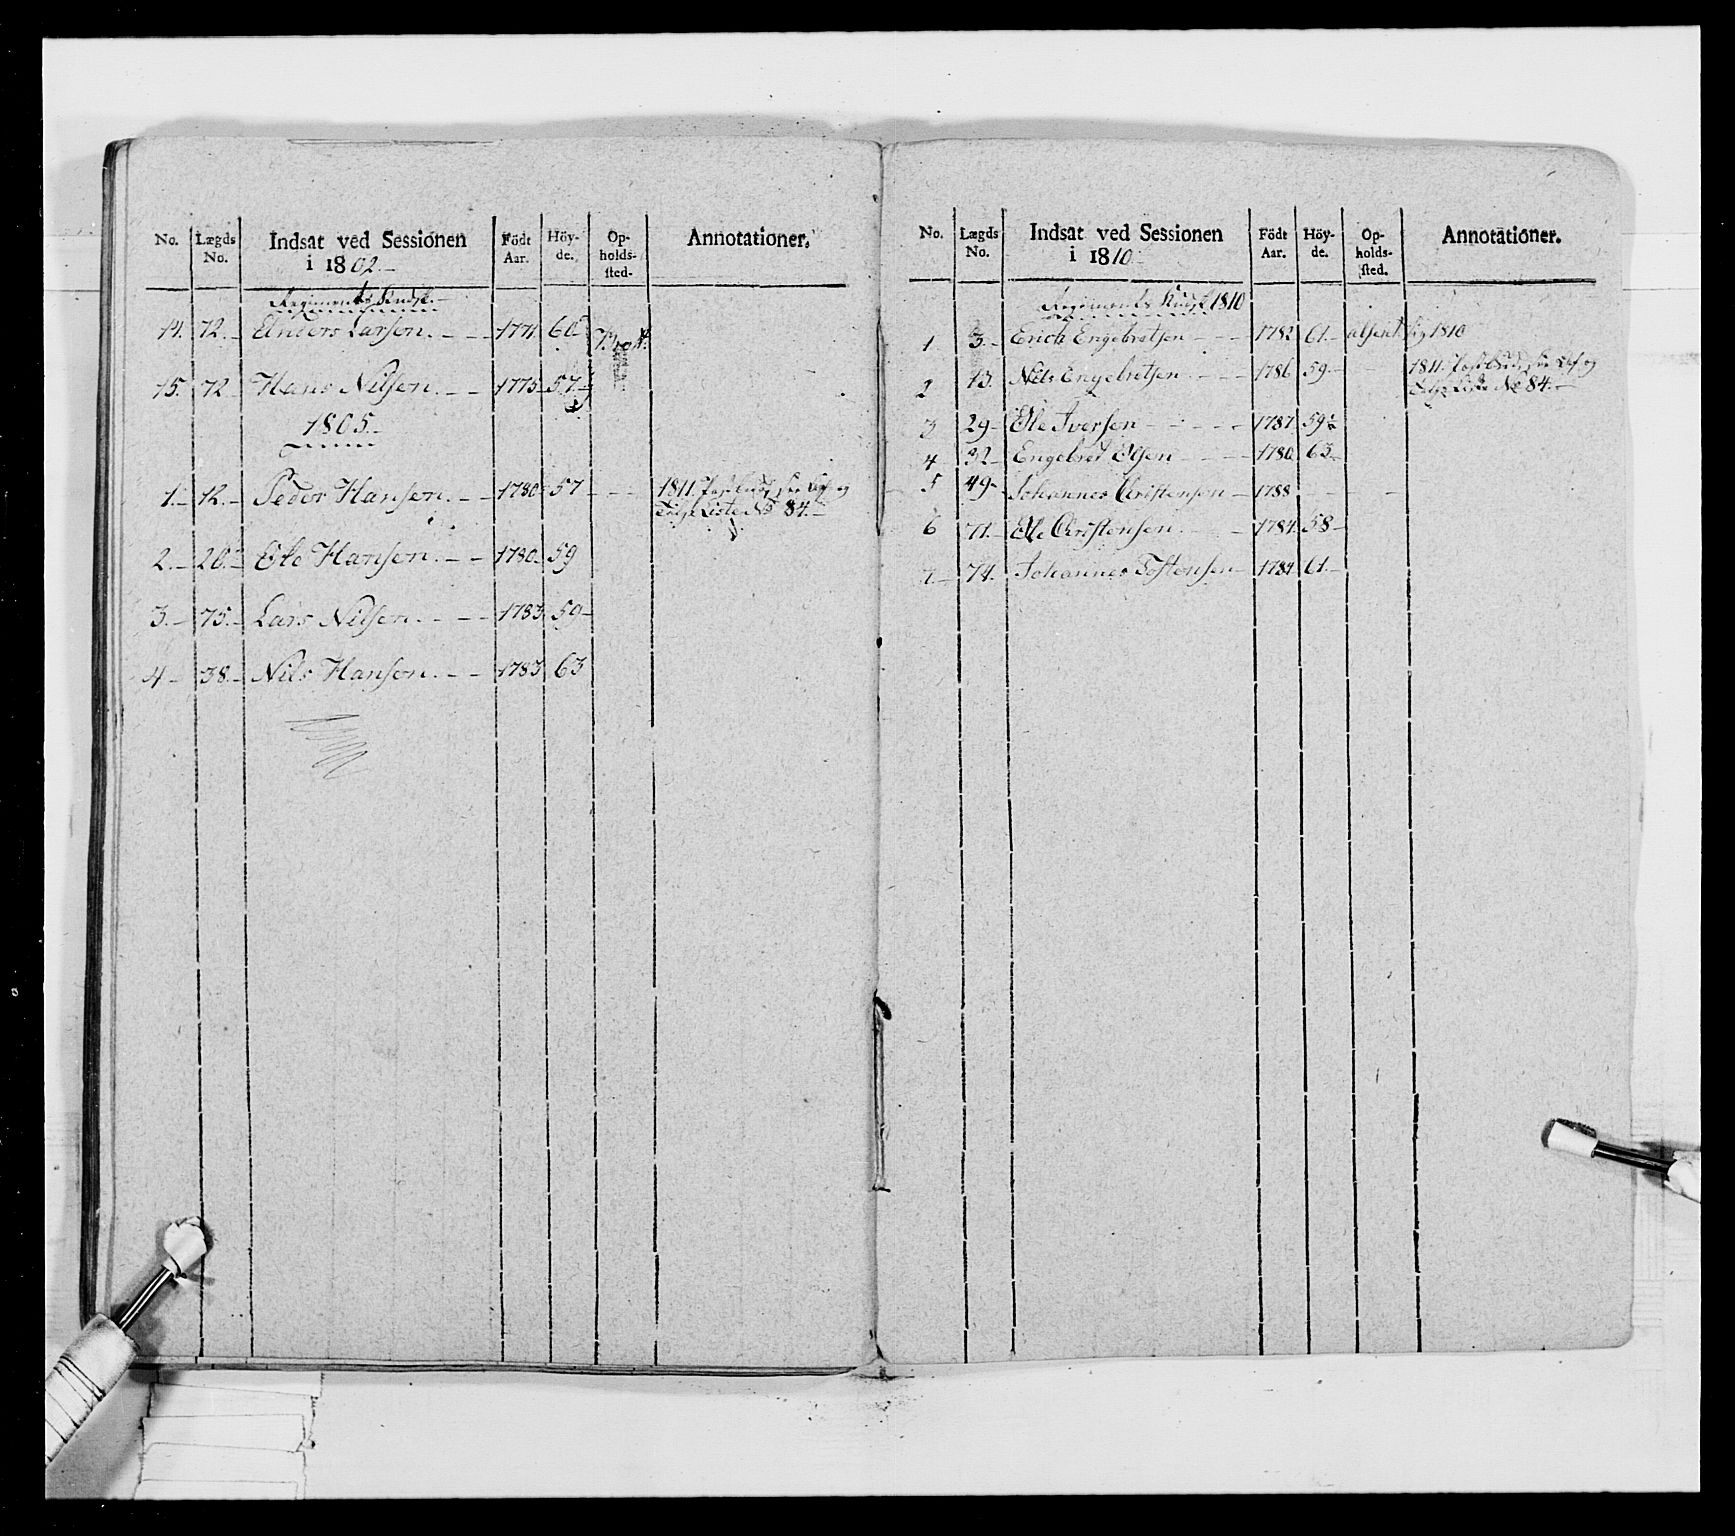 No. Lægds No. Indsat ved Sessionen i 1802.- Födt Aar. Höy-de. Op-holds-sted. Annotationer.
Regiments
14. 72.- Anders Larsen. - - - 1771 60
15. 72 Hans Nilsen. - - 1775 57
1805.
1.- 12.- Peder Hansen. - - 1780 57 - - - 1811.
Liste No 84.-
2.- 20.- Ole Hansen. - - 1780 59
3.- 75.- Lars Nilsen. - - - 1783 59-
4- 38.- Nils Hansen. - - 1783 63
No. Lægds No. Indsat ved Sessionen i 1810 Födt Aar. Höy-de. Op-holds-sted. Annotationer.
Regiments 1810
1 3.- Erich Engebretsen - - - 1782 61.- 1810
2 13.- Nils Engebretsen - - - 1786 59.- 1811.
Liste No 84.-
3 29- Ole Iversen - - - - 1787 59½
4 32- Engebret Olsen - - - 1780 63-
5 49- Johannes Christensen - 1788
6 71.- Ole Christensen - - - 1784 58-
7.- 74.- Johannes Tostensen - 1784 61.-